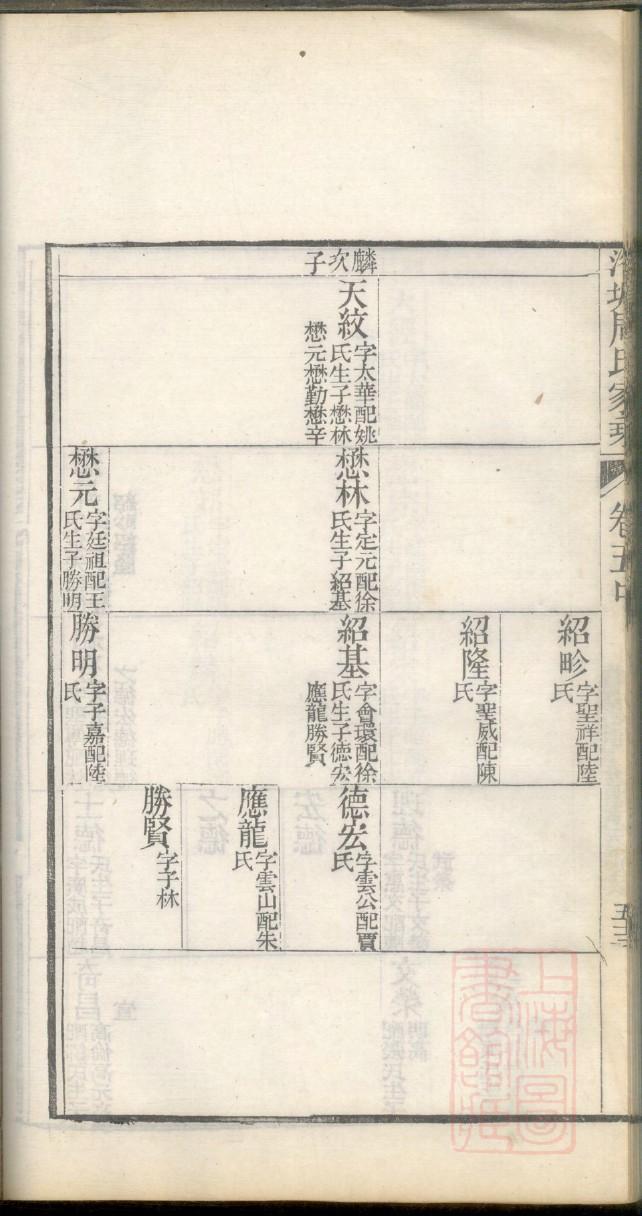 周氏家乘
卷五中
五三
麟次子
天紋
字太華配姚
氏生子懋林
懋元懋勤懋辛
懋林
字定元配徐
氏生子紹基
懋元
字廷祖配王
氏生子勝明
紹畛
字聖祥配陸
氏
紹隆
字聖威配陳
氏
紹基
字會環配徐
氏生子德宏
應龍勝賢
勝明
字子嘉配陸
氏
德宏
字雲公配賈
氏
應龍
字雲山配朱
氏
勝賢
字子林
上海圖
書館藏